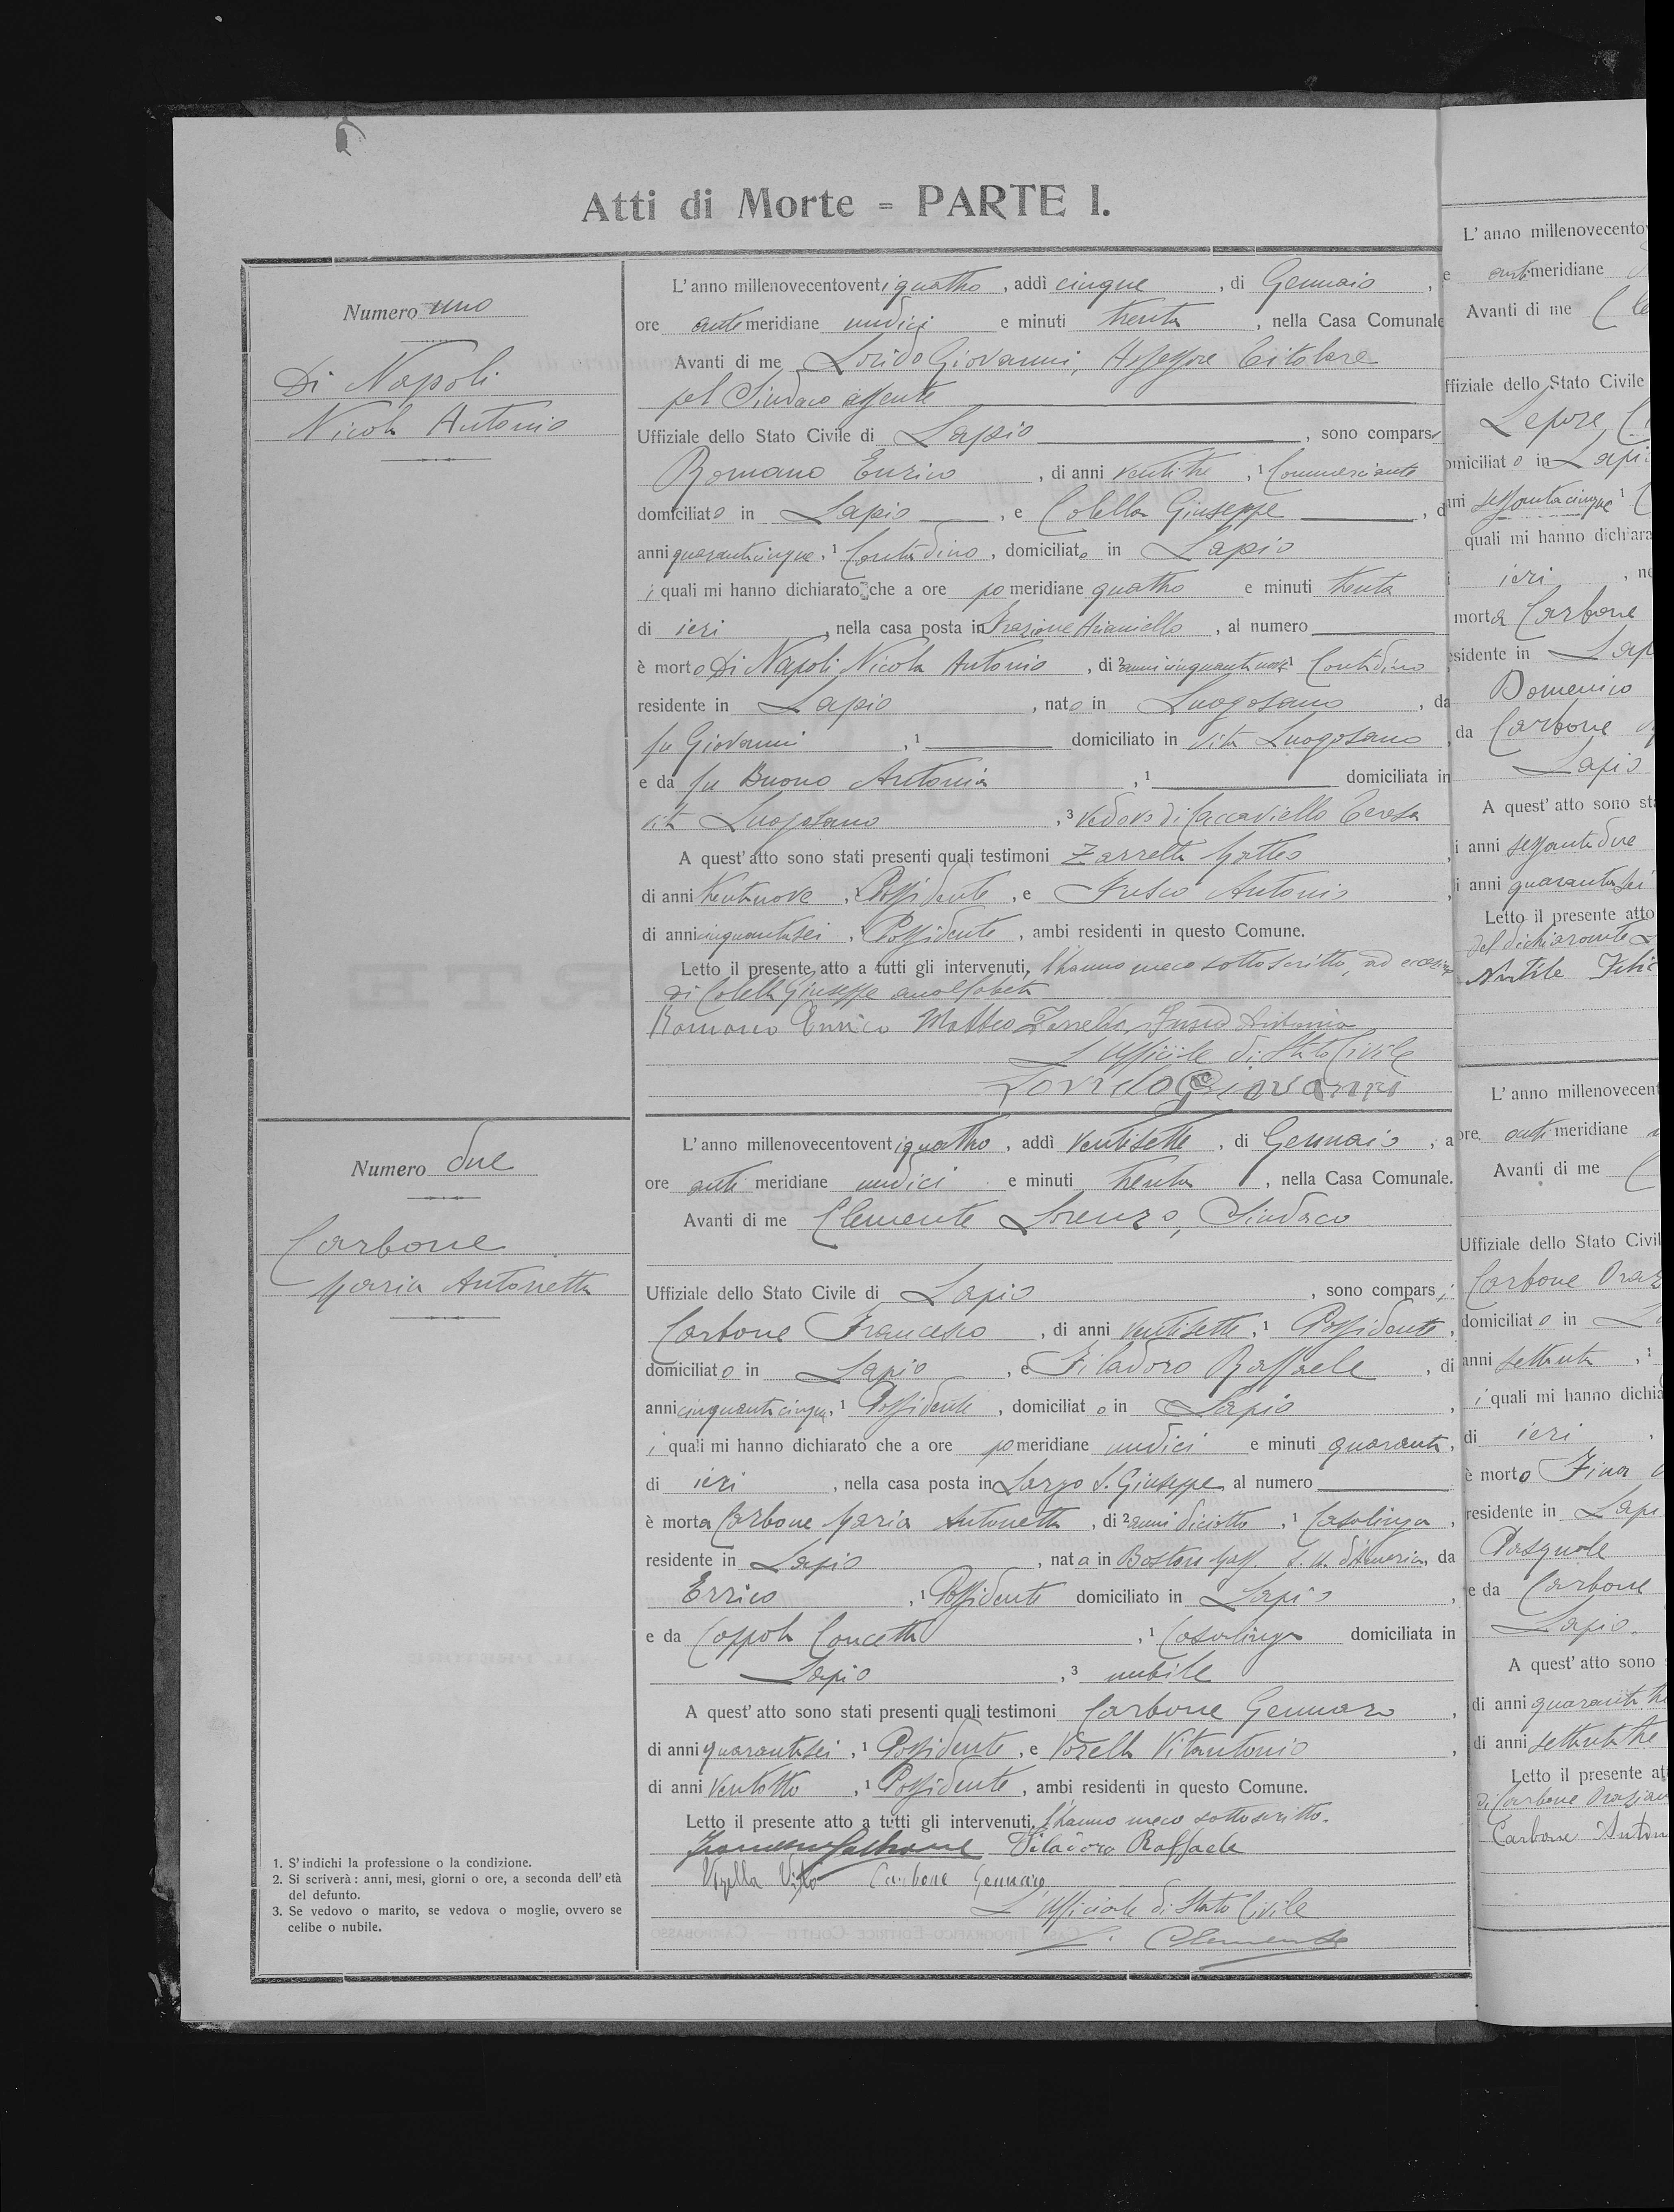 Atti di Morte = PARTE I.
Numero uno
Di Napoli
Nicola Antonio
L'anno millenovecentoventiquattro, addì cinque, di Gennaio,
ore antimeridiane undici e minuti trenta, nella Casa Comunale
Avanti di me Lorido Giovanni, Assessore Titolare
pel Sindaco assente
Uffiziale dello Stato Civile di Lapio, sono comparsi
Romano Enrico, di anni ventitre, 1 Commerciante
domiciliato in Lapio, e Colella Giuseppe, d
anni quarantacinque, 1 Contadino, domiciliato in Lapio
i quali mi hanno dichiarato che a ore pomeridiane quattro e minuti trenta
di ieri, nella casa posta in Frazione Arianiello, al numero
è morto Di Napoli Nicola Antonio, di 2 anni cinquantanove 1 Contadino
residente in Lapio, nato in Luogosano, da
fu Giovanni, 1 domiciliato in vita Luogosano
e da fu Buono Antonia, 1 domiciliata in
vita Luogosano, 3 vedovo di Caccaviello Teresa
A quest'atto sono stati presenti quali testimoni Zarrella Matteo
di anni trentanove, Possidente, e Fusco Antonio
di anni cinquantasei, Possidente, ambi residenti in questo Comune.
Letto il presente atto a tutti gli intervenuti, l'hanno meco sottoscritto, ad eccezione
di Colella Giuseppe analfabeta
Romano Enrico Matteo Zarrella, Fusco Antonio
L'Ufficiale di Stato Civile
Lorido Giovanni
Numero due
Carbone
Maria Antonetta
L'anno millenovecentoventiquattro, addì ventisette, di Gennaio, a
ore anti meridiane undici e minuti trenta, nella Casa Comunale.
Avanti di me Clemente Lorenzo, Sindaco
Uffiziale dello Stato Civile di Lapio, sono comparsi
Carbone Francesco, di anni ventisette, 1 Possidente,
domiciliato in Lapio, e Filadoro Raffaele, di
anni cinquantacinque, 1 Possidente, domiciliato in Lapio,
i quali mi hanno dichiarato che a ore pomeridiane undici e minuti quaranta,
di ieri, nella casa posta in Largo S. Giuseppe al numero
è morta Carbone Maria Antonetta, di 2 anni diciotto, 1 Casalinga,
residente in Lapio, nata in Boston Mass. S. U. d'America, da
Errico, 1 Possidente domiciliato in Lapio,
e da Coppola Concetta, 1 Casalinga domiciliata in
Lapio, 3 nubile
A quest'atto sono stati presenti quali testimoni Carbone Gennaro,
di anni quarantasei, 1 Possidente, e Vozella Vitantonio,
di anni ventotto, 1 Possidente, ambi residenti in questo Comune.
Letto il presente atto a tutti gli intervenuti, l'hanno meco sottoscritto.
Francesco Carbone Filadoro Raffaele
Vozella Vito Carbone Gennaro
L'Ufficiale di Stato Civile
L. Clemente
1. S'indichi la professione o la condizione.
2. Si scriverà: anni, mesi, giorni o ore, a seconda dell'età
del defunto.
3. Se vedovo o marito, se vedova o moglie, ovvero se
celibe o nubile.
L'anno millenovecentov
e antimeridiane
Avanti di me Cle
ffiziale dello Stato Civile
Lepore,
omiciliato in Lapi
nni sessantacinque 1
quali mi hanno dichiara
i ieri, ne
morta Carbone
esidente in Lap
Domenico
da Carbone
Lapio
A quest'atto sono sta
i anni sessantadue
i anni quarantasei
Letto il presente atto
del dichiarante
L'anno millenovecent
ore antimeridiane
Avanti di me
Uffiziale dello Stato Civil
Carbone Oraz
domiciliato in L
anni settanta, 1
i quali mi hanno dichia
di ieri,
è morto Fina
residente in Lapi
Pasquale
e da Carbone
Lapio.
A quest'atto sono
di anni quarantatre
di anni settantatre
Letto il presente at
di Carbone
Carbone Anton